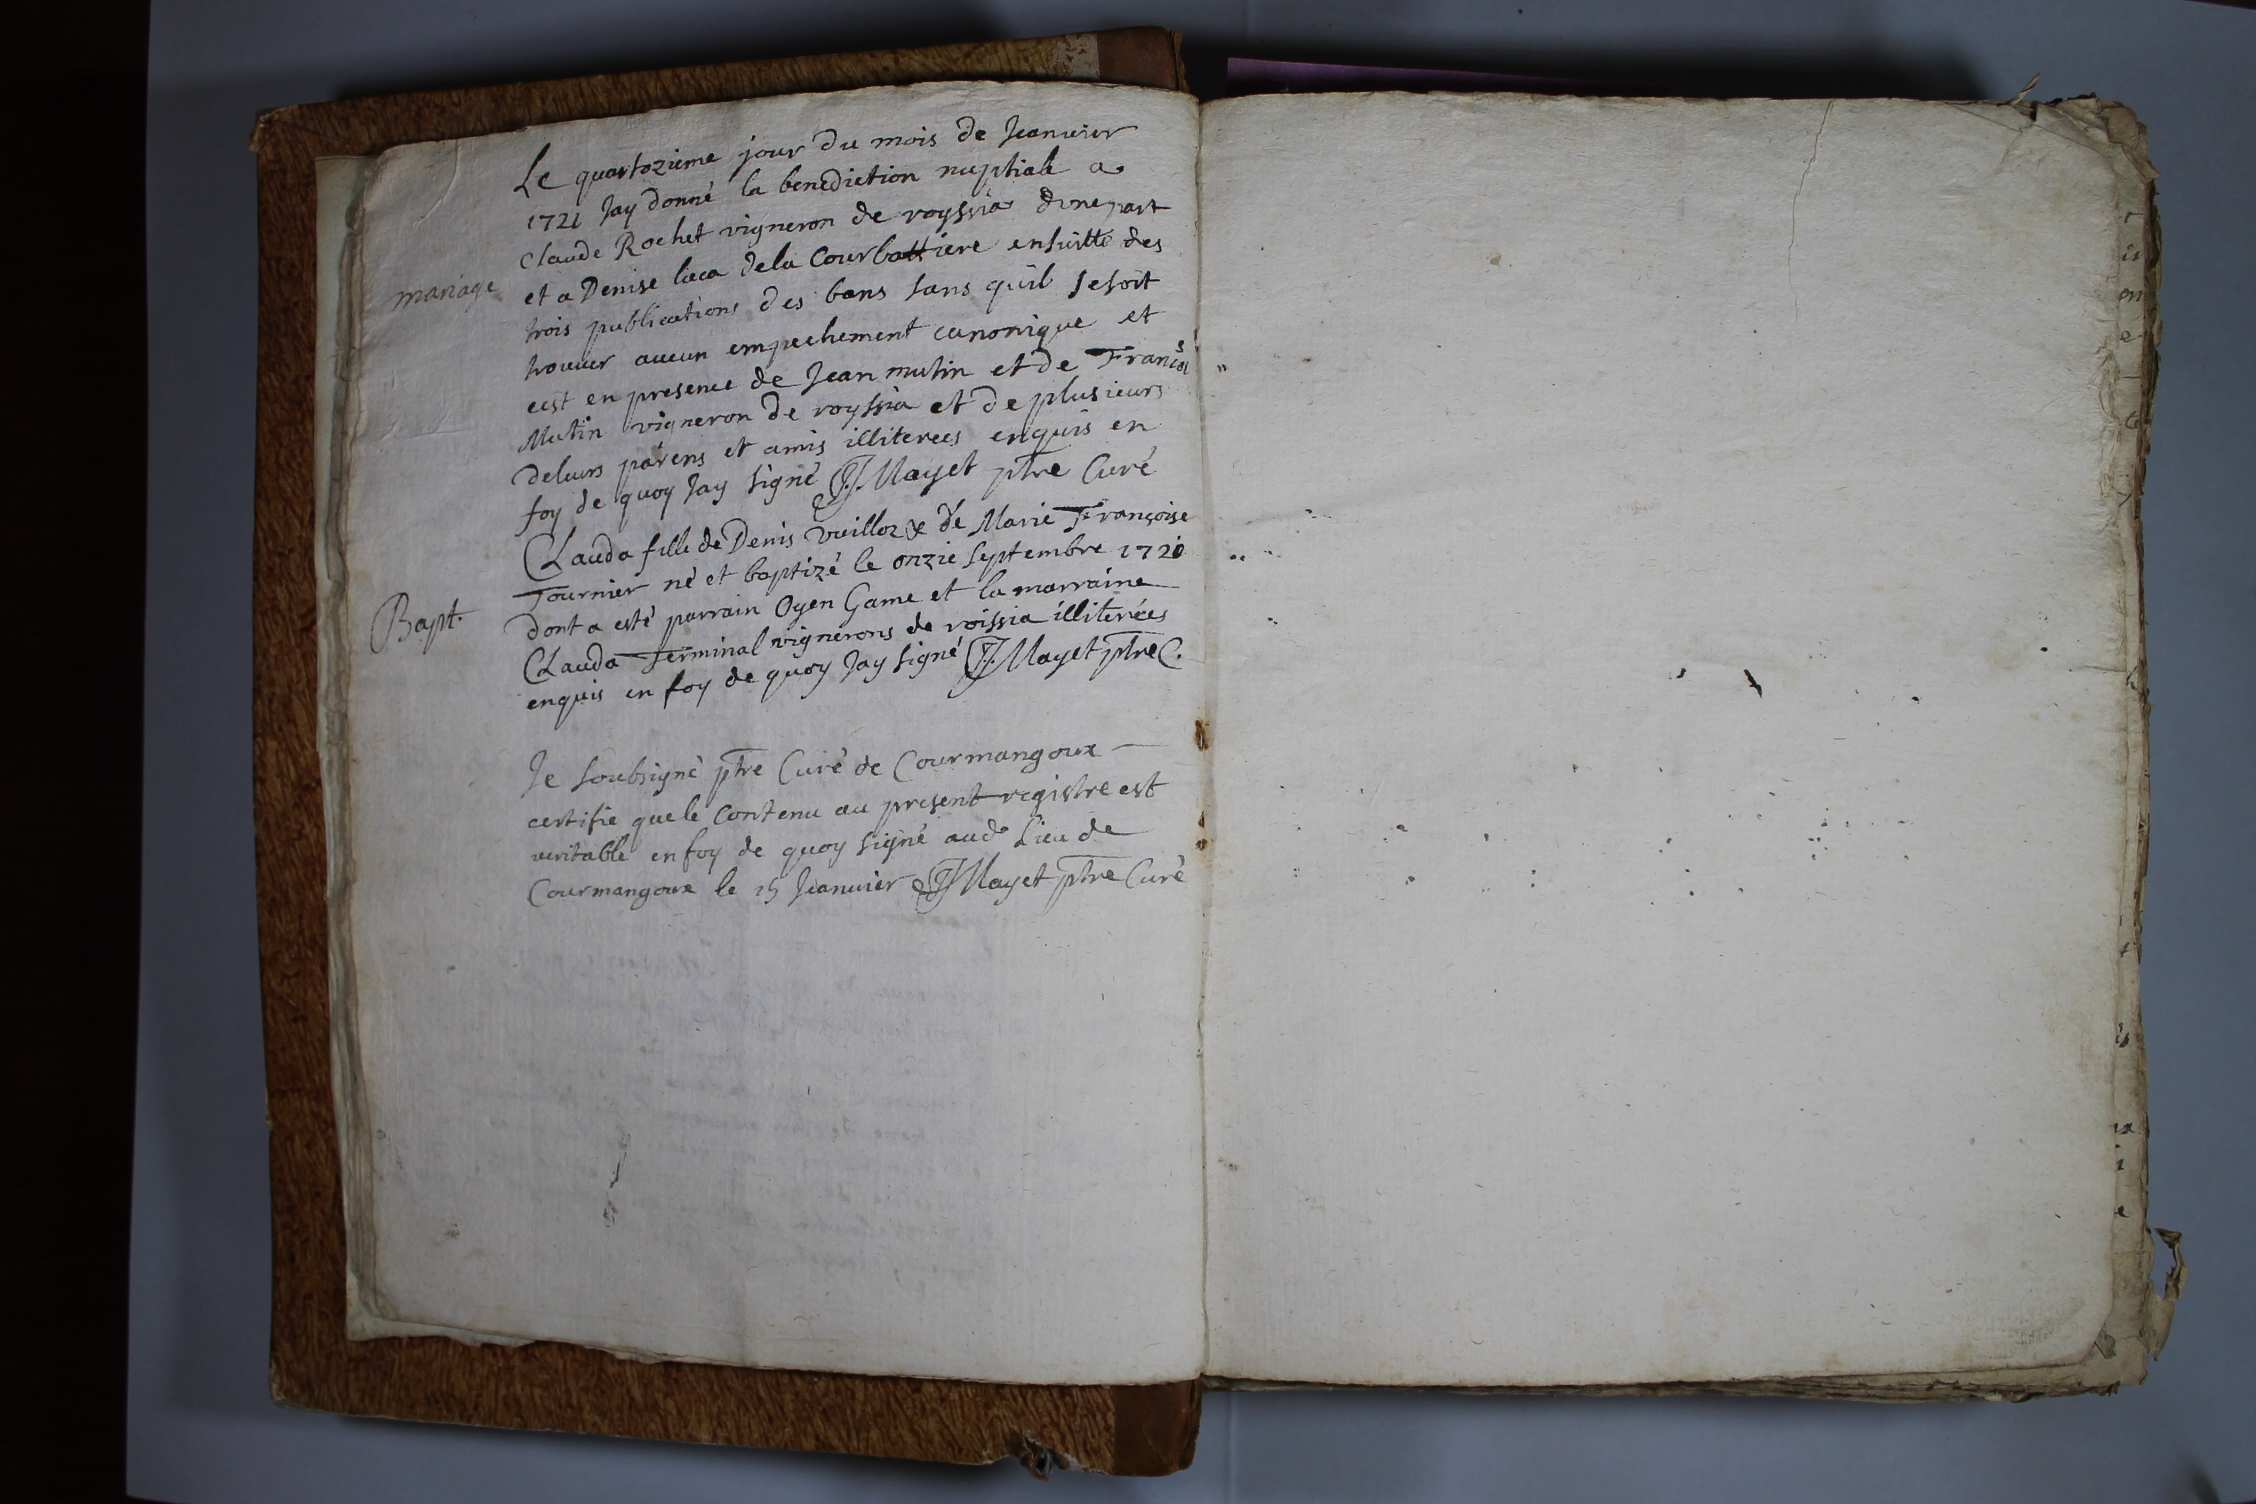 Le quartozieme jour du mois de Jeanvier
1721 Jay donné la benediction nuptiale a
Claude Rochet vigneron de royssia dune part
mariage
et a Denise luca dela Courbattiere ensuitte des
trois publications des bans sans quil se soit
trouver aucun empechement canonique et
cest en presence de Jean mutin et de François
Mutin vigneron de royssia et de plusieurs
deleurs parens et amis illiterees enquis en
foy de quoy Jay signé J. Mayet ptre Curé
Clauda fille de Denis vuilloz & de Marie Françoise
Tournier né et baptizé le onzie septembre 1720
Bapt.
dont a esté parrain Oyen Game et la marraine
Clauda Terminal vignerons de roissia illiterées
enquis en foy de quoy Jay signé J. Mayet ptre C.
Je soubsigné ptre Curé de Courmangoux
certifie que le contenu au present registre est
veritable en foy de quoy signé aud Lieu de
Courmangoux le 15 Jeanvier J Mayet ptre Curé